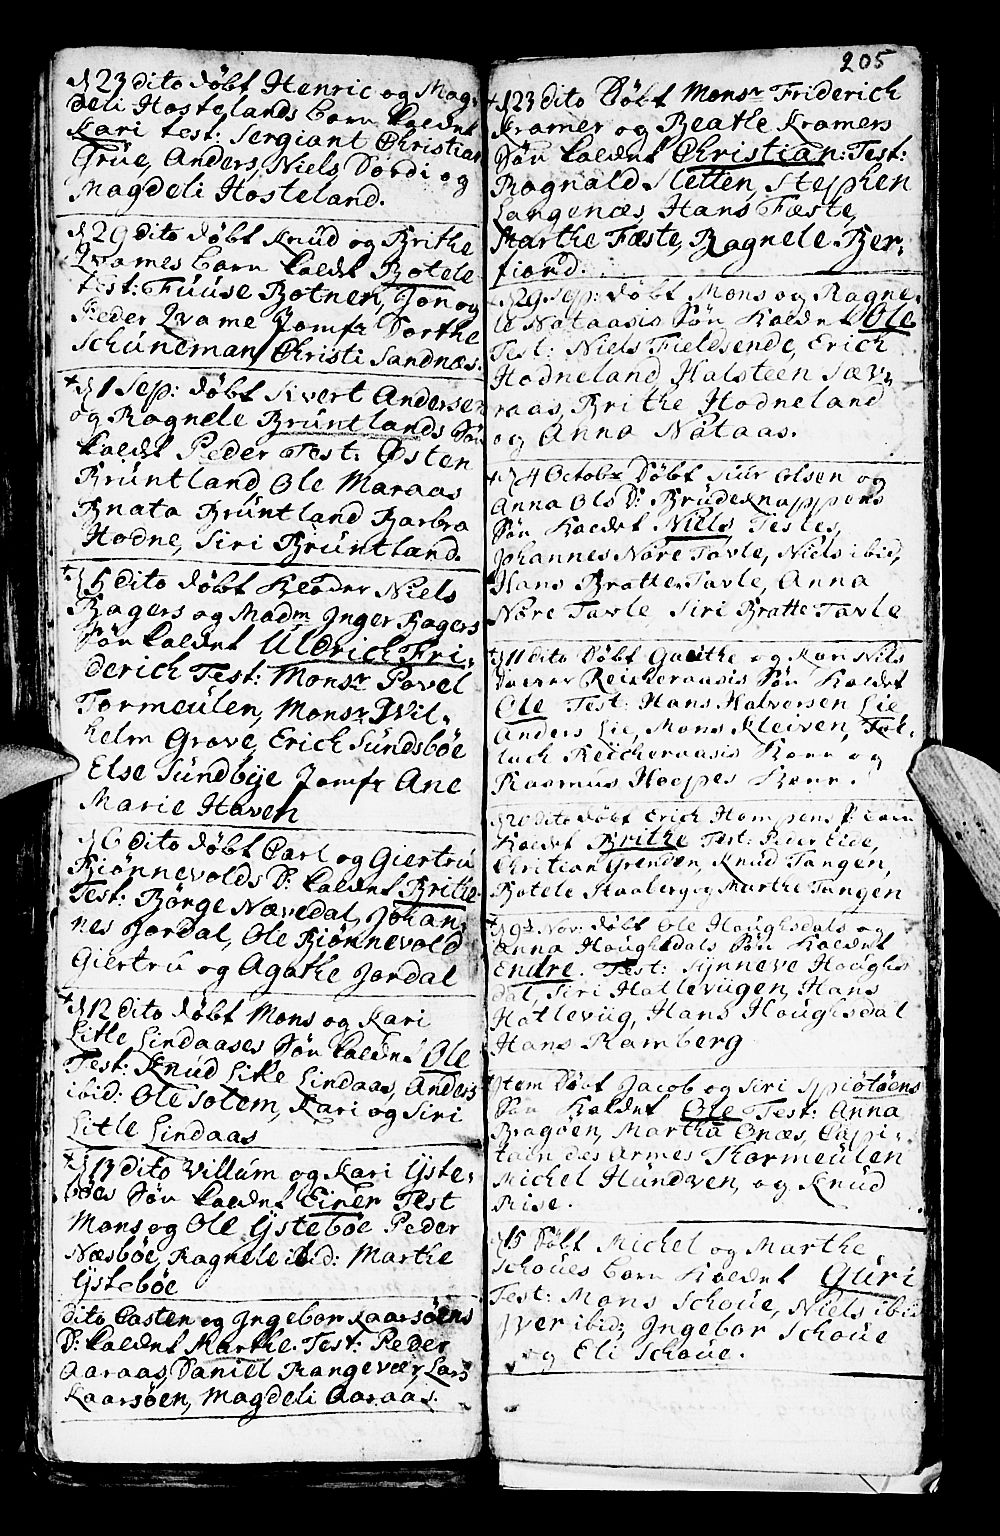 d 23 dito døbt Henric og Mag-
deli Hostelands barn kaldet
Kari test: Sergiant Christian
Grüe, Anders, Niels Dordi og
Magdeli Hosteland.
d 29 dito døbt Knüd og Brithe
Qvames barn kaldt Botele
test: Fuuse Botnen, Jon og
Peder Qvame Jomfr Dorthe
Schüneman, Christi Sandnæs.
d 1 Sep: døbt Sivert Andersen
og Ragnele Brüntlands Søn
kaldt Peder Test: Østen
Brüntland Ole Maraas
Brüntland Barbra
Hodne, Siri Brüntland.
d 5 dito døbt Niels
Bagers og Madm Inger Bagers
Søn kaldet Uldrich Fri-
derich Test: Monsr Povel
Tormeülen, Monsr Wil-
helm Grove, Erich Sündsbøe
Else Sündbye Jomfr Ane
Marie Haven
d 6 dito døbt Carl og Giertru
Biønnevolds D: kaldet Brithe
Test: Børge Nævedal, Johan-
nes Jordal, Ole Biønnevold
Giertru og Agathe Jordal
d 12 dito døbt Mons og Kari
Litle Lindaases Søn kaldet Ole
Test: Knüd Litle Lindaas, Anders
ibid: Ole Solem, Kari og Siri
Litle Lindaas
d 13 dito Villum og Kari Yste-
bøes Søn kaldet Einer Test
Mons og Ole Ystebøe Peder
Næsbøe, Ragnele ibid: Marthe
Ystebøe
dito Casten og Ingebor Kaarsøens
D: kaldet Marthe. Test: Peder
Aaraas, Daniel Rangevær, Lars
Kaarsøen, Magdeli Aaraas.
205
d 23 dito Døbt Monsr Friderich
Kramer og Beathe Kramers
Søn kaldet Christian: Test:
Ragnald Sletten, Stephen
Langenæs, Hans Fæste,
Marthe Fæste, Ragnele Ber-
fiord.
d 29 Sep: døbt Mons og Ragne-
le Nataasis Søn kaldet Ole
Test: Niels Fieldsende, Erich
Hodneland, Halsteen Sæv-
raas, Brithe Hodneland
og Anna Nataas.
d 4 Octobr Døbt Siur Olsen og
Anna Ols D: Brudeknappens
Søn kaldet Niels Testes,
Johannes Nøre Tavle, Niels ibid,
Hans Bratte Tavle, Anna
Nøre Tavle, Siri Bratte Tavle
d 11 dito Døbt og Kari Nils
Daatter Reicheraasis Søn kaldet
Ole Test: Hans Halversen Lie
Anders Lie, Mons Kleiven, Tol-
lach Reicheraasis Kone og
Rasmus Hopes Kone.
d 20 dito døbt Erich Hompens barn
kaldet Brithe Test: Peder Eide,
Christian Grenden, Knud Tangen,
Botele Haaberg og Marthe Tangen
d 9de Nov: døbt Ole Houghsdals og
Anna Houghsdals Søn kaldet
Endre. Test: Synneve Houghs-
dal, Siri Hatlevügen, Hans
Hatlevüg, Hans Houghsdal
Hans Ramberg
Item Døbt Jacob og Siri Spiøtøens
Søn kaldet Ole Test: Anna
Bragøen, Martha Onæs, Capi-
tain des Armes Thormeülen
Michel Hündven, og Knüd
Rise.
d 15 Døbt Michel og Marthe
Schoües barn kaldet Guri
Test: Mons Schoüe, Niels ibid
Iver ibid: Ingebor Schoüe
og Eli Schoüe.